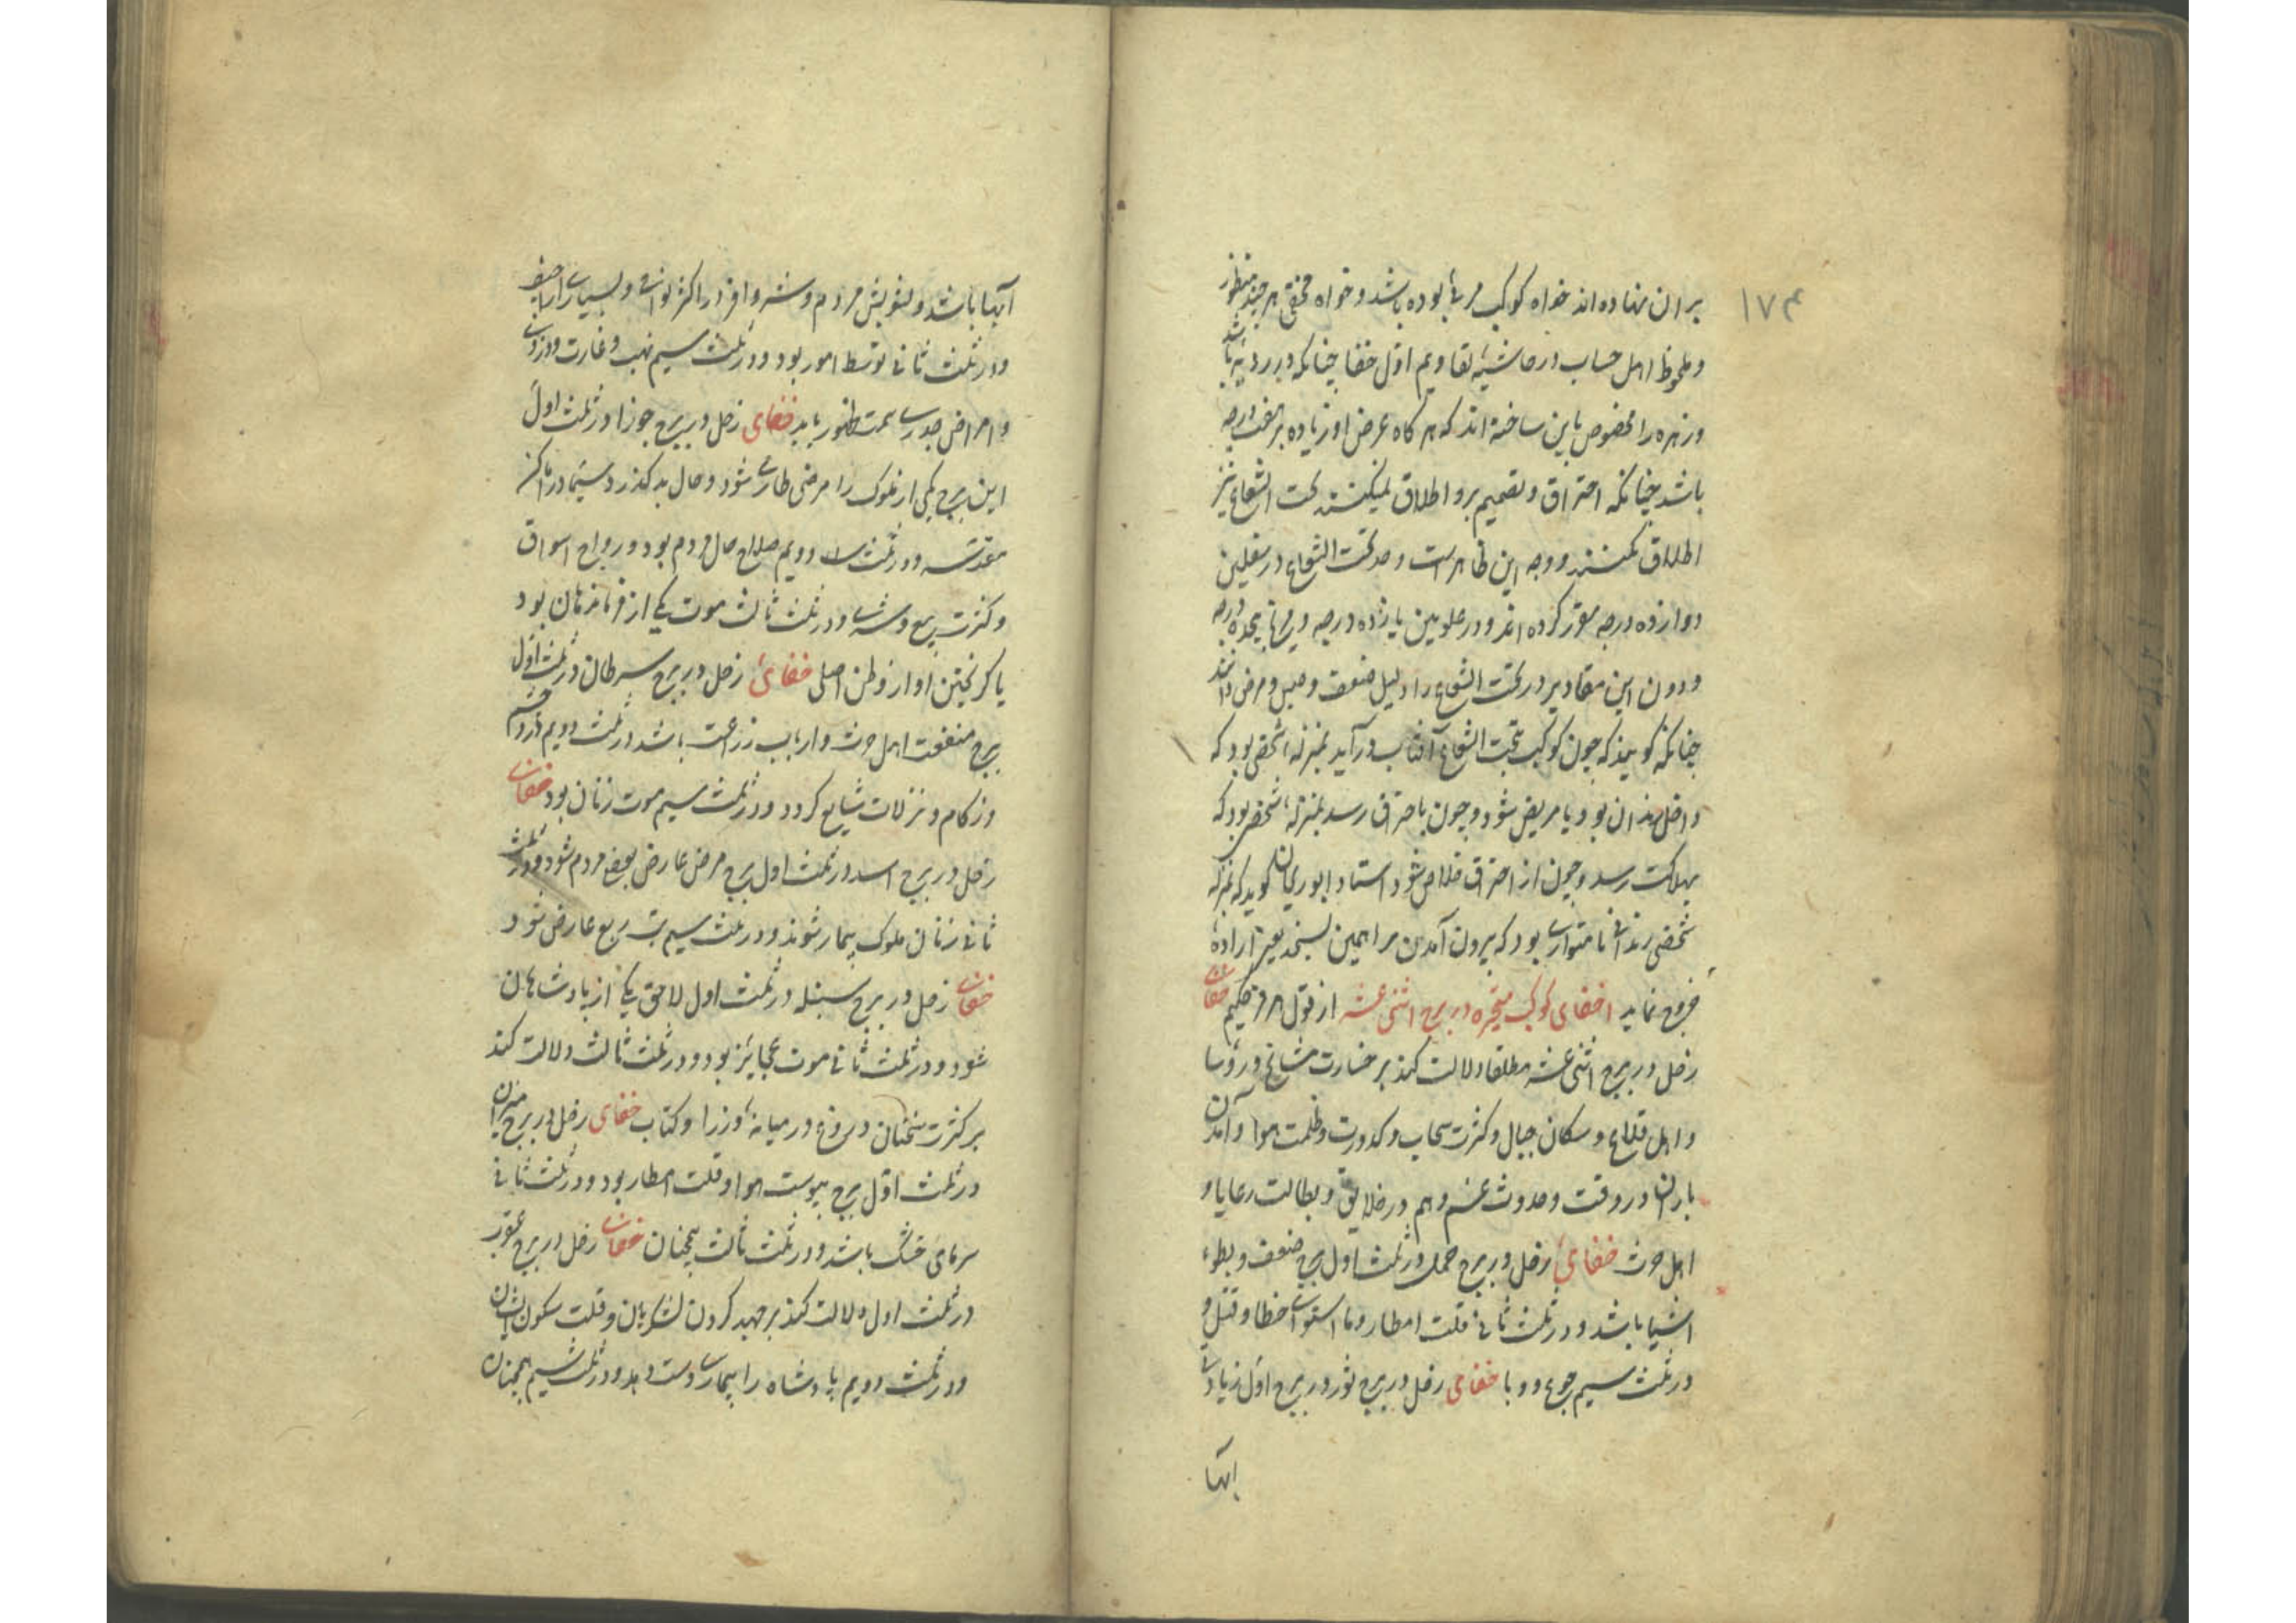 ۱۷۴
بران نهاده اند خواه کوکب مرئی بوده باشد و خواه مخفی هر چند منظور
و ملحوظ اهل حساب در حاشیهٔ تقاویم اول خفا چنانکه در باشد
و زهره را مخصوص باین ساخته اند که هرکاه عرض او زیاده بر درجه
باشد چنانکه احتراق و تصمیم برو اطلاق نمیکنند تحت الشعاع نیز
اطلاق نکنند و وجه این ظاهر است و حد تحت الشعاع در سفلیین
دوازده درجه مقرر کرده اند و در علویین پانزده درجه و مریخ هیجده درجه
و دون این مقادیر در تحت الشعاع را دلیل ضعف و حبس و مرض دانند
چنانکه کویند که چون کوکب بتحت الشعاع آفتاب درآید بمنزله شخصی بود که
داخل زندان بود یا مریض شود و چون باحتراق رسد بمنزله شخصی بود که
بهلاکت رسد و چون از احتراق خلاص شود استاد ابوریحان کوید که بمنزله
شخصی زندانی یا متواری بود که بیرون آمدن را بسیجد یعنی ارادهٔ
خروج نماید اختفای کواکب متحیره در بروج اثنی عشر از قول هر حکیم خفای
زحل در بروج اثنی عشر مطلقا دلالت کند بر خسارت مشایخ و رؤسا
و اهل قلاع و سکان جبال و کثرت سحاب و کدورت و ظلمت هوا و آمدن
باران در وقت و حدوث غم و هم در خلایق و بطالت رعایا و
اهل حرث خفای زحل در برج حمل در ثلث اول برج ضعف و بطوء
اشیا باشد و در ثلث ثانی قلت امطار و ما استوای خطا و قتل و
در ثلث سیم جوع و وبا خفای زحل در برج ثور در برج اول زیادتی
آبها
آبها باشد و تشویش مردم و شر وافر در اکثر نواحی و بسیاری اراجیف
و در ثلث ثانی توسط امور بود و در ثلث سیم نهب و غارت و دزدی
و امراض جدری سمت ظهور یابد خفای زحل در برج جوزا در ثلث اول
این برج یکی از ملوک را مرضی طاری شود و حال بد کذرد سیما در اماکن
مقدسه و در ثلث دویم صلاح حال مردم بود و رواج اسواق
و کثرت بیع و شری و در ثلث ثالث موت یکی از فرماندهان بود
یا کریختن او از وطن اصلی خفای زحل در برج سرطان در ثلث اول
برج منفعت اهل حرث و ارباب زراعت باشد در ثلث دویم درد چشم
و زکام و نزلات شایع کردد و در ثلث سیم موت زنان بود خفای
زحل در برج اسد در ثلث اول برج مرض عارض بعضی مردم شود و در ثلث
ثانی زنان ملوک بیمار شوند و در ثلث سیم تب ربع عارض شود
خفای زحل در برج سنبله در ثلث اول لاحق یکی از پادشاهان
شود و در ثلث ثانی موت عجایز بود و در ثلث ثالث دلالت کند
بر کثرت سخنان دروغ در میانهٔ وزرا و کتاب خفای زحل در برج میزان
در ثلث اول برج یبوست هوا و قلت امطار بود و در ثلث ثانی
سرمای خشک باشد و در ثلث ثالث همچنان خفای زحل در برج عقرب
در ثلث اول دلالت کند بر جهد کردن لشکریان و قلت سکون ایشان
و در ثلث دویم پادشاه را بیماری دست دهد و در ثلث سیم همچنان